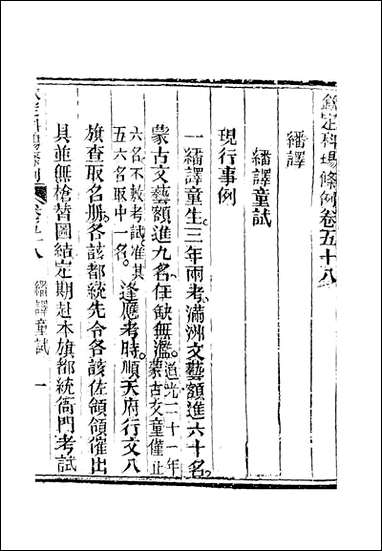 欽定科場條例卷五十八
繙譯
繙譯童試
現行事例
一繙譯童生三年兩考滿洲文藝額進六十名
蒙古文藝額進九名任缺無濫道光二十一年蒙古文童僅止
六名不敷考試准其五六名取中一名逢應考時順天府行文八
旗查取名册各該都統先令各該佐領領催出
具並無槍替圖結定期赴本旗都統衙門考試
繙譯童試
一